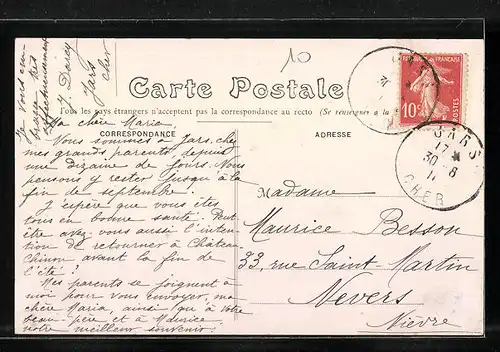 Je vous em-
brasse très
affectueusement
Y. Darcy
Jars
Cher
10
RÉPUBLIQUE FRANÇAISE
10c
POSTES
Carte Postale
Tous les pays étrangers n'acceptent pas la correspondance au recto (Se renseigner à la
JARS
17 *
30 - 8
11
CHER
CORRESPONDANCE
ADRESSE
Ma chère Maria
Vous sommes à Jars, chez
mes grands parents depuis
une dizaine de jours. Nous
pensons y rester jusqu'à la
fin de septembre.
J'espère que vous êtes
tous en bonne santé. Peut
être avez-vous aussi l'inten-
tion de retourner à Château-
Chinon avant la fin de
l'été ?
Mes parents se joignent à
moi pour vous envoyer, ma
chère Maria, ainsi qu'à votre
beau-père et à Maurice
notre meilleur souvenir.
Madame
Maurice Besson
33, rue Saint-Martin
Nevers
Nièvre